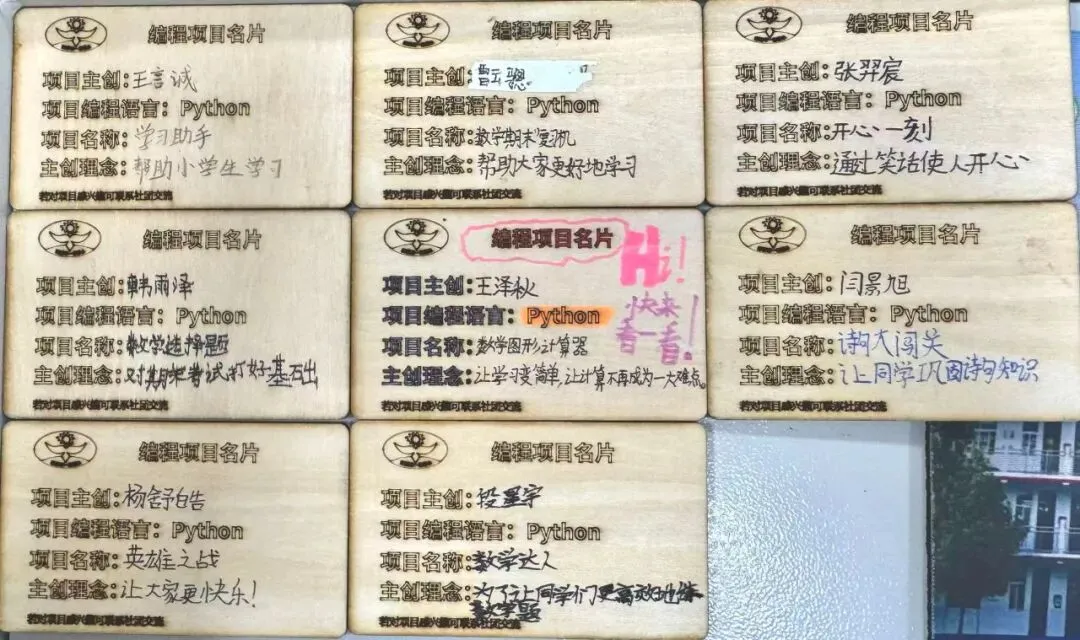 编程项目名片
项目主创:王言诚
项目编程语言: Python
项目名称:学习助手
主创理念:帮助小学生学习
若对项目感兴趣可联系社团交流
编程项目名片
项目主创:
项目编程语言: Python
项目名称:数学期末复习机
主创理念:帮助大家更好地学习
若对项目感兴趣可联系社团交流
编程项目名片
项目主创:张羿宸
项目编程语言: Python
项目名称:开心一刻
主创理念:通过笑话使人开心
若对项目感兴趣可联系社团交流
编程项目名片
项目主创:韩雨泽
项目编程语言: Python
项目名称:数学选择题
主创理念:对期末考试打好基础
若对项目感兴趣可联系社团交流
编程项目名片
Hi!
项目主创:王泽秋
项目编程语言: Python
快来
看一看!
项目名称:数学图形计算器
主创理念:让学习变简单,让计算不再成为一大难点。
若对项目感兴趣可联系社团交流
编程项目名片
项目主创:闫景旭
项目编程语言: Python
项目名称:诗句大闯关
主创理念:让同学巩固诗句知识
若对项目感兴趣可联系社团交流
编程项目名片
项目主创:杨舒皓
项目编程语言: Python
项目名称:英雄之战
主创理念:让大家更快乐!
若对项目感兴趣可联系社团交流
编程项目名片
项目主创:段星宇
项目编程语言: Python
项目名称:数学达人
主创理念:为了让同学们更高效地练
数学题
若对项目感兴趣可联系社团交流